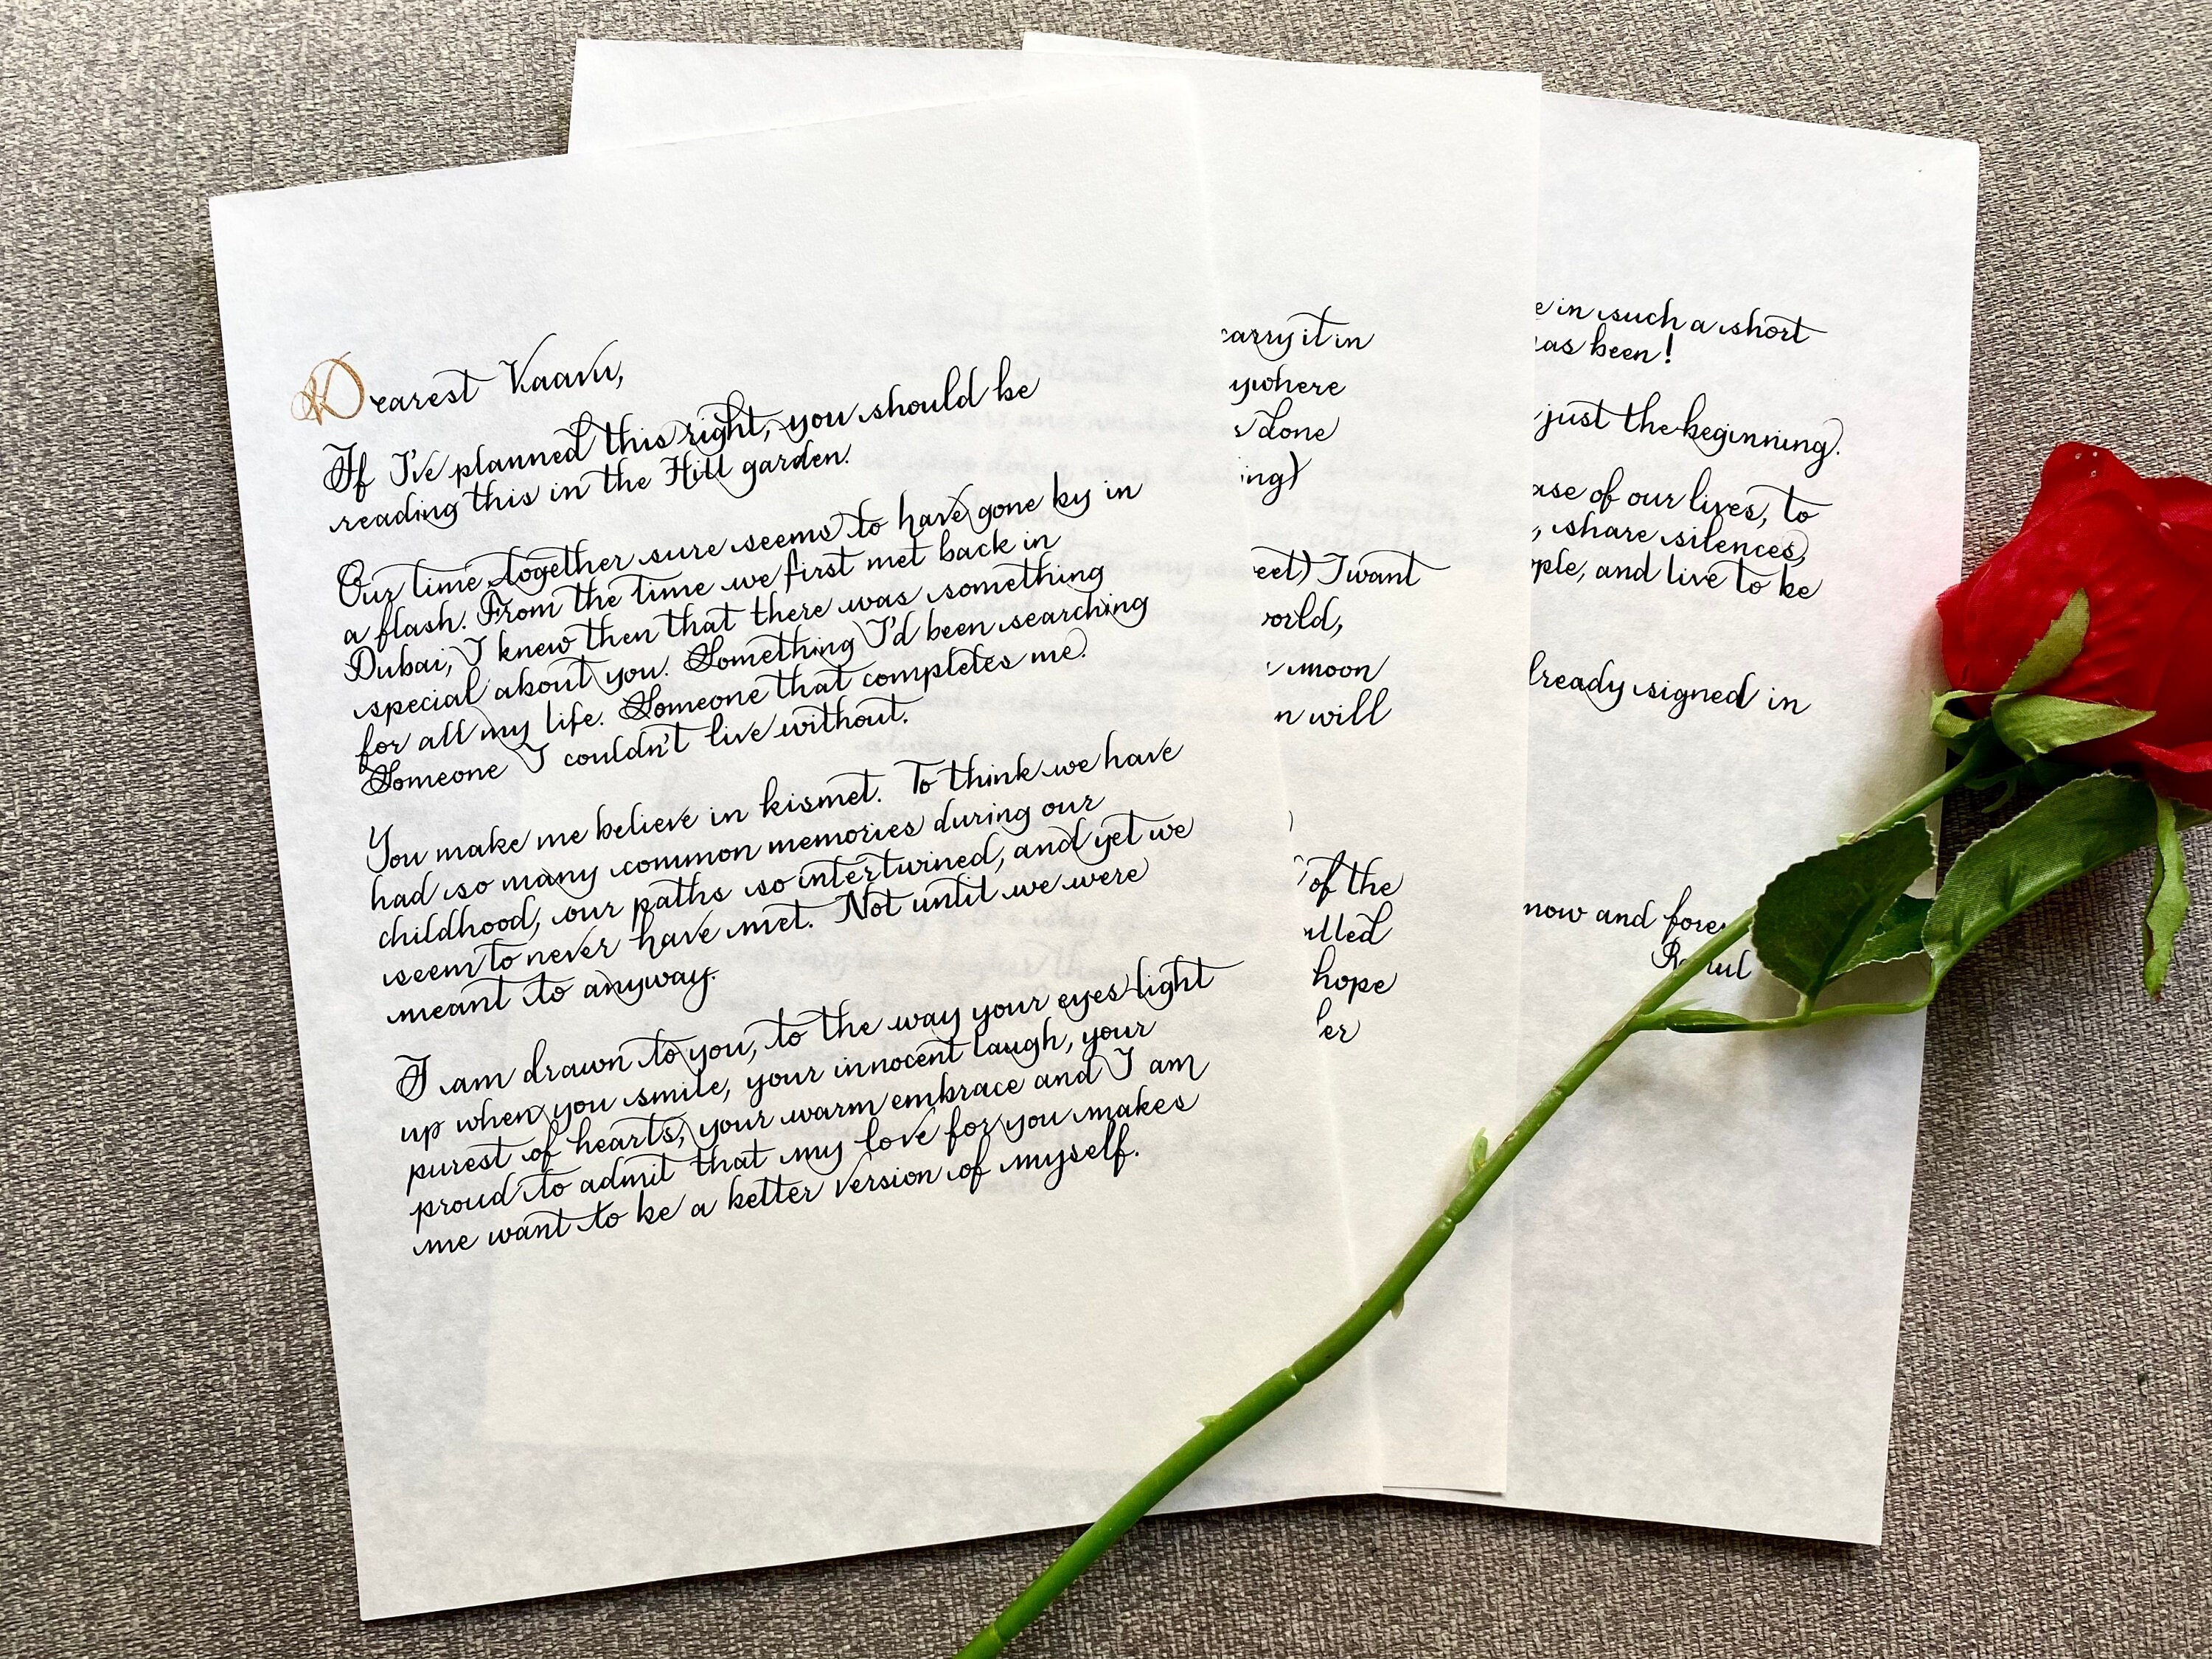 Dearest Kaavu,
If I've planned this right, you should be
reading this in the Hill garden.
Our time together sure seems to have gone by in
a flash. From the time we first met back in
Dubai, I knew then that there was something
special about you. Something I'd been searching
for all my life. Someone that completes me.
Someone I couldn't live without.
You make me believe in kismet. To think we have
had so many common memories during our
childhood, our paths so intertwined, and yet we
seem to never have met. Not until we were
meant to anyway.
I am drawn to you, to the way your eyes light
up when you smile, your innocent laugh, your
purest of hearts, your warm embrace and I am
proud to admit that my love for you makes
me want to be a better version of myself.
carry it in
ywhere
done
ing)
eet) I want
world,
moon
n will
of the
lled
hope
er
e in such a short
as been!
just the beginning.
ase of our lives, to
, share silences,
ple, and live to be
lready signed in
now and fore